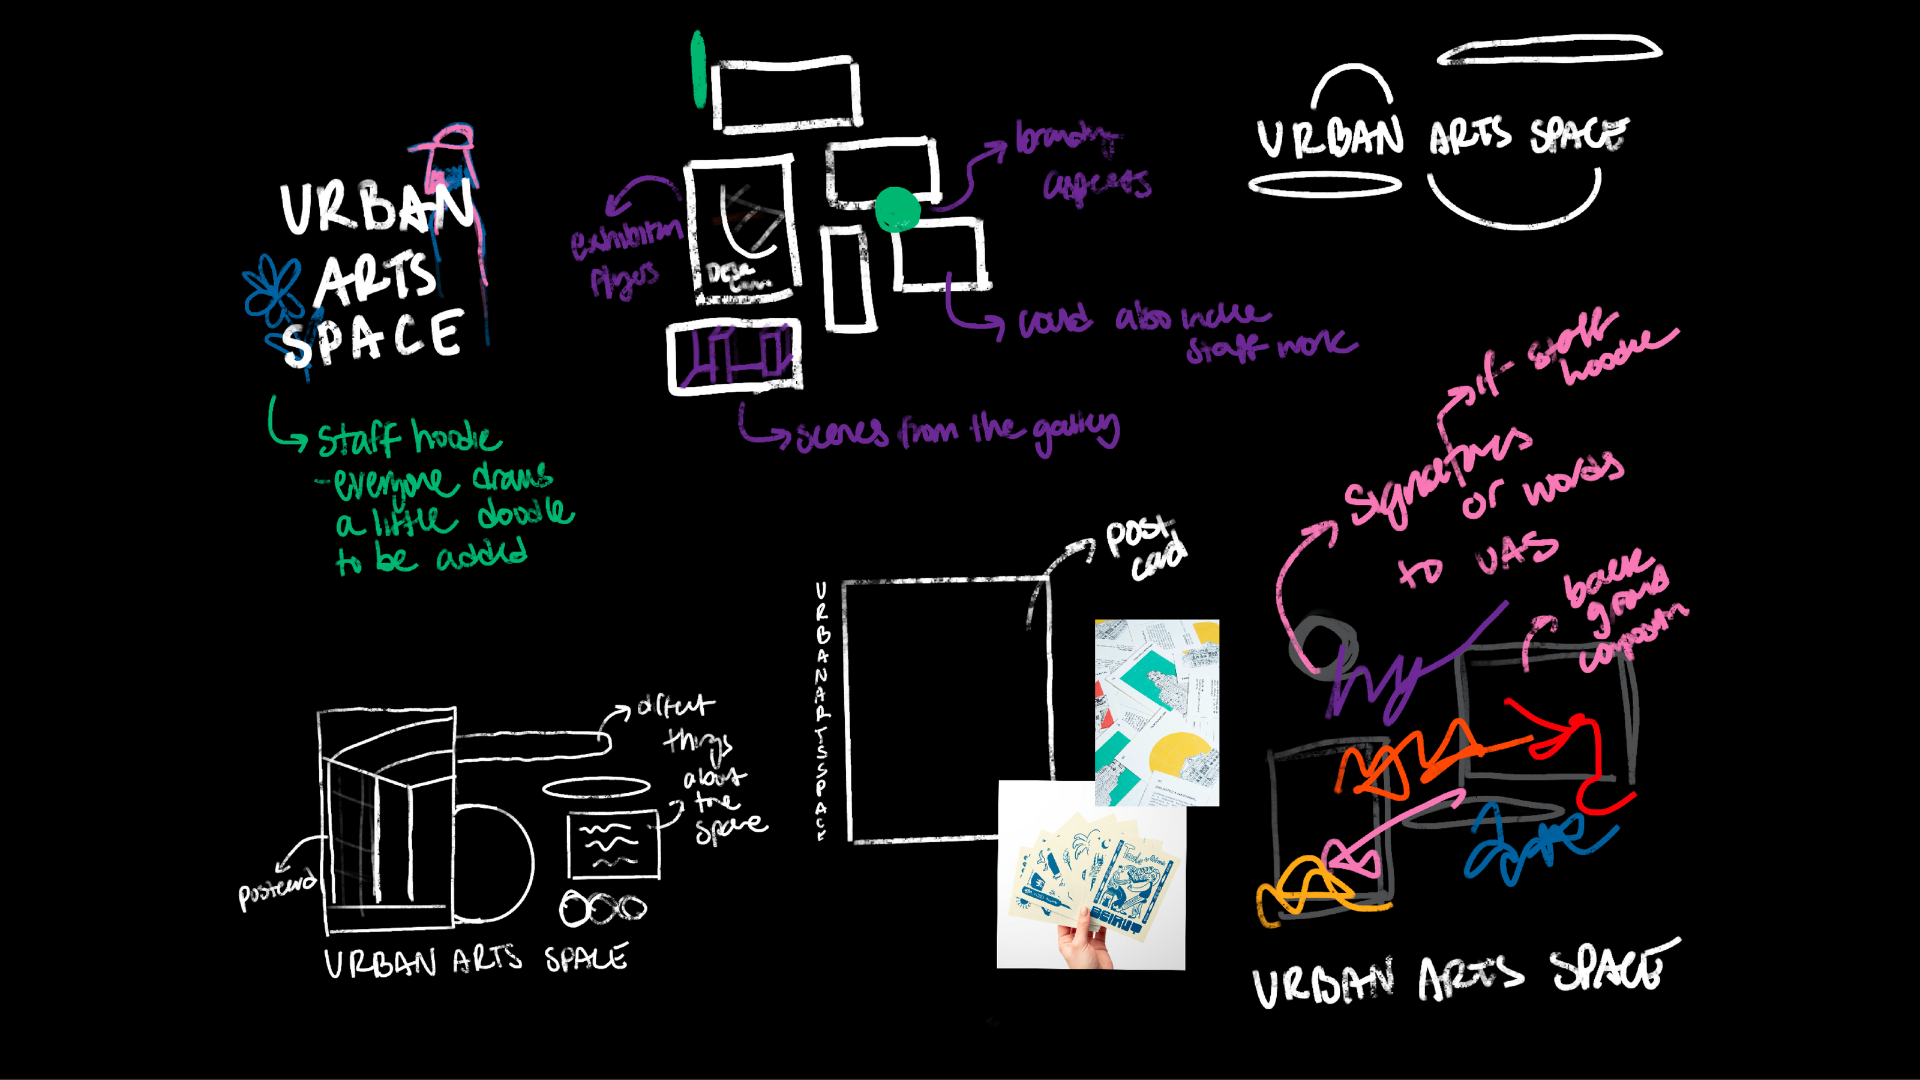 URBAN
ARTS
SPACE
staff hoodie
- everyone draws
a little doodle
to be added
exhibition
flyers
branding
aspects
could also include
staff work
scenes from the gallery
URBAN ARTS SPACE
if staff
hoodie
signatures
or words
to UAS
back
ground
composition
post
card
URBANARTSSPACE
BEIRUT
different
things
about
the
space
postcard
URBAN ARTS SPACE
URBAN ARTS SPACE